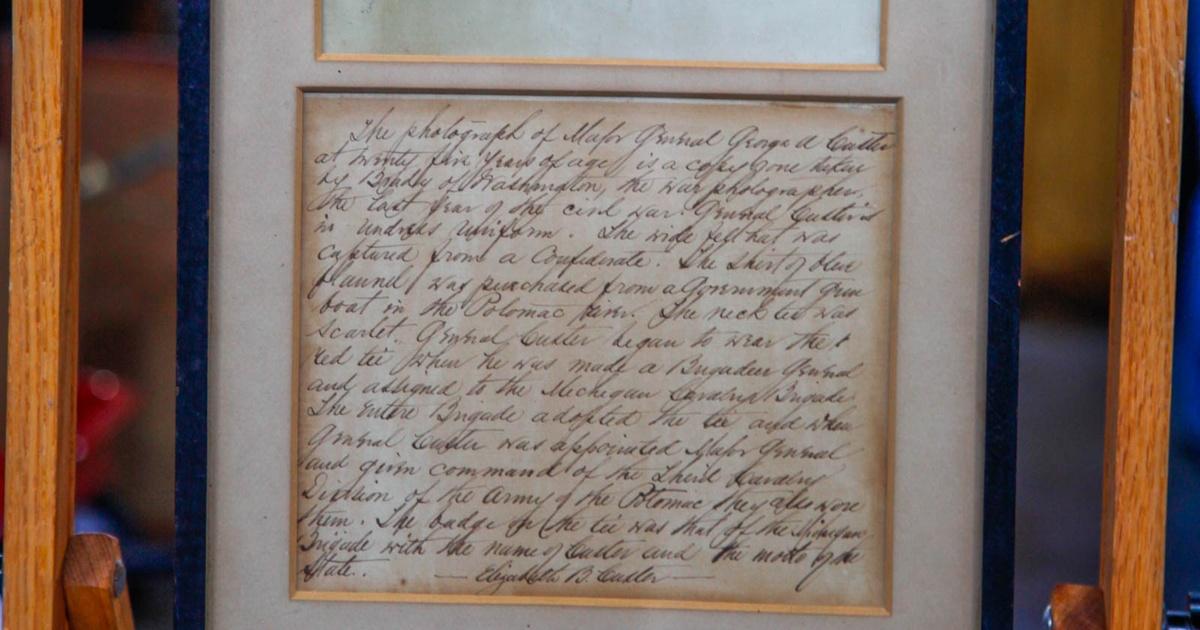 The photograph of Major General George A Custer
at twenty five years of age is a copy of one taken
by Brady of Washington, the war photographer,
the last year of the civil war. General Custer is
in undress uniform. The wide felt hat was
captured from a Confederate. The shirt of blue
flannel was purchased from a Government gun
boat in the Potomac river. The neck tie was
scarlet. General Custer began to wear the
red tie when he was made a Brigadier General
and assigned to the Michigan Cavalry Brigade
The entire Brigade adopted the tie and when
General Custer was appointed Major General
and given command of the Third Cavalry
Division of the Army of the Potomac they also wore
them. The badge on the tie was that of the Michigan
Brigade with the name of Custer and the motto of the
State. — Elizabeth B. Custer —